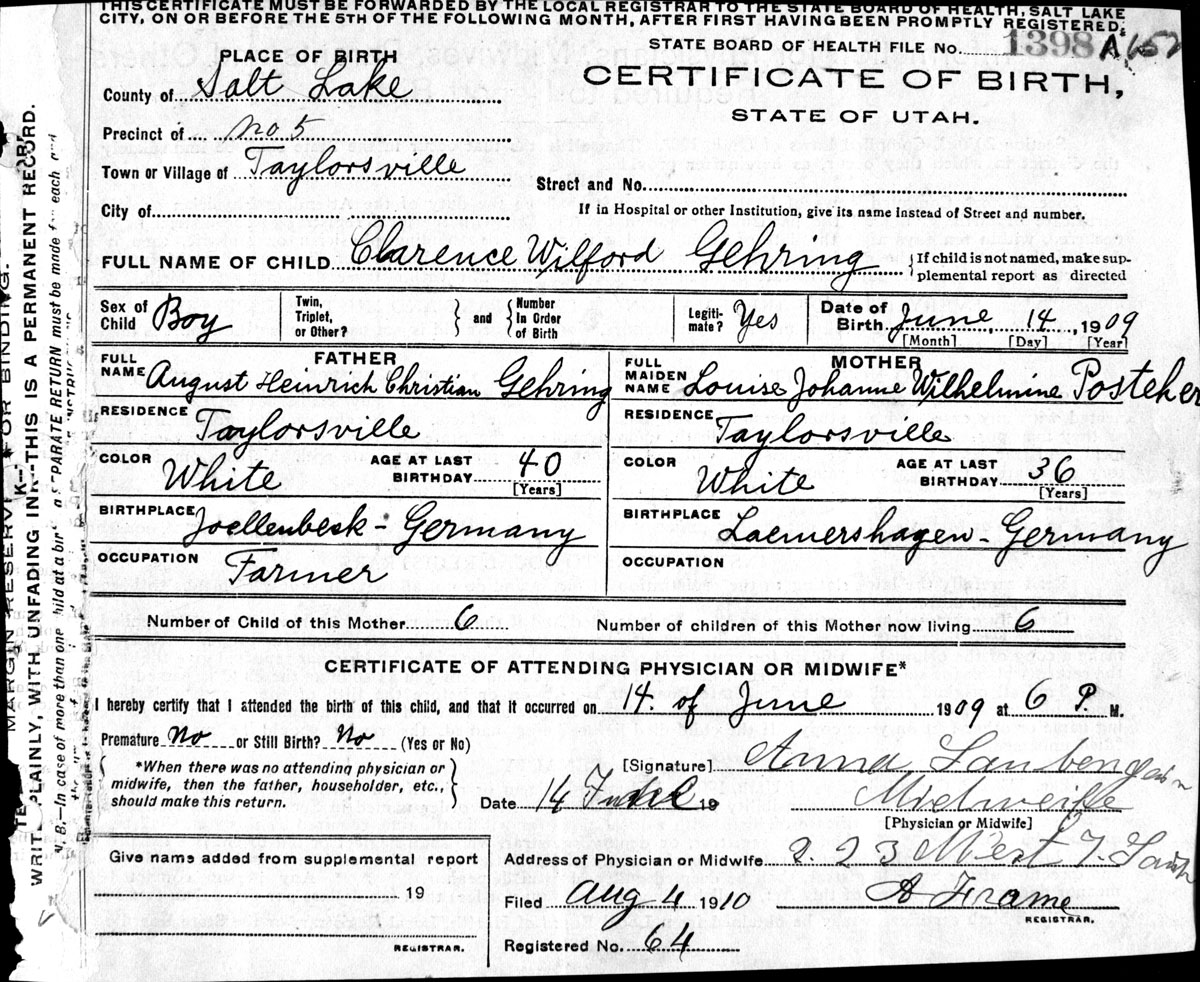 THIS CERTIFICATE MUST BE FORWARDED BY THE LOCAL REGISTRAR TO THE STATE BOARD OF HEALTH, SALT LAKE
CITY, ON OR BEFORE THE 5TH OF THE FOLLOWING MONTH, AFTER FIRST HAVING BEEN PROMPTLY REGISTERED.
STATE BOARD OF HEALTH FILE No. 1398 A
PLACE OF BIRTH
CERTIFICATE OF BIRTH,
STATE OF UTAH.
County of Salt Lake
Precinct of no 5
Town or Village of Taylorsville
Street and No.
City of
If in Hospital or other Institution, give its name instead of Street and number.
FULL NAME OF CHILD Clarence Wilford Gehring
{If child is not named, make sup-
plemental report as directed
Sex of Child Boy
Twin, Triplet, or Other? } and { Number In Order of Birth
Legiti-mate? Yes
Date of Birth June 14, 1909
[Month] [Day] [Year]
FATHER
FULL NAME August Heinrich Christian Gehring
RESIDENCE Taylorsville
COLOR White AGE AT LAST BIRTHDAY 40
[Years]
BIRTHPLACE Joellenbeck - Germany
OCCUPATION Farmer
MOTHER
FULL MAIDEN NAME Louise Johanne Wilhelmine Posteher
RESIDENCE Taylorsville
COLOR White AGE AT LAST BIRTHDAY 36
[Years]
BIRTHPLACE Laemershagen - Germany
OCCUPATION
Number of Child of this Mother 6 Number of children of this Mother now living 6
CERTIFICATE OF ATTENDING PHYSICIAN OR MIDWIFE*
I hereby certify that I attended the birth of this child, and that it occurred on 14. of June 1909 at 6 P. M.
Premature No or Still Birth? No (Yes or No)
{*When there was no attending physician or
midwife, then the father, householder, etc.,
should make this return.}
[Signature] Anna
Date 14 19
Midweife
[Physician or Midwife]
Give name added from supplemental report
19
REGISTRAR.
Address of Physician or Midwife 23 West
Filed Aug 4 1910 A Frame
REGISTRAR.
Registered No. 64
MARGIN RESERVED FOR BINDING.
WRITE PLAINLY, WITH UNFADING INK--THIS IS A PERMANENT RECORD.
N. B.—In case of more than one child at a birth a SEPARATE RETURN must be made for each and